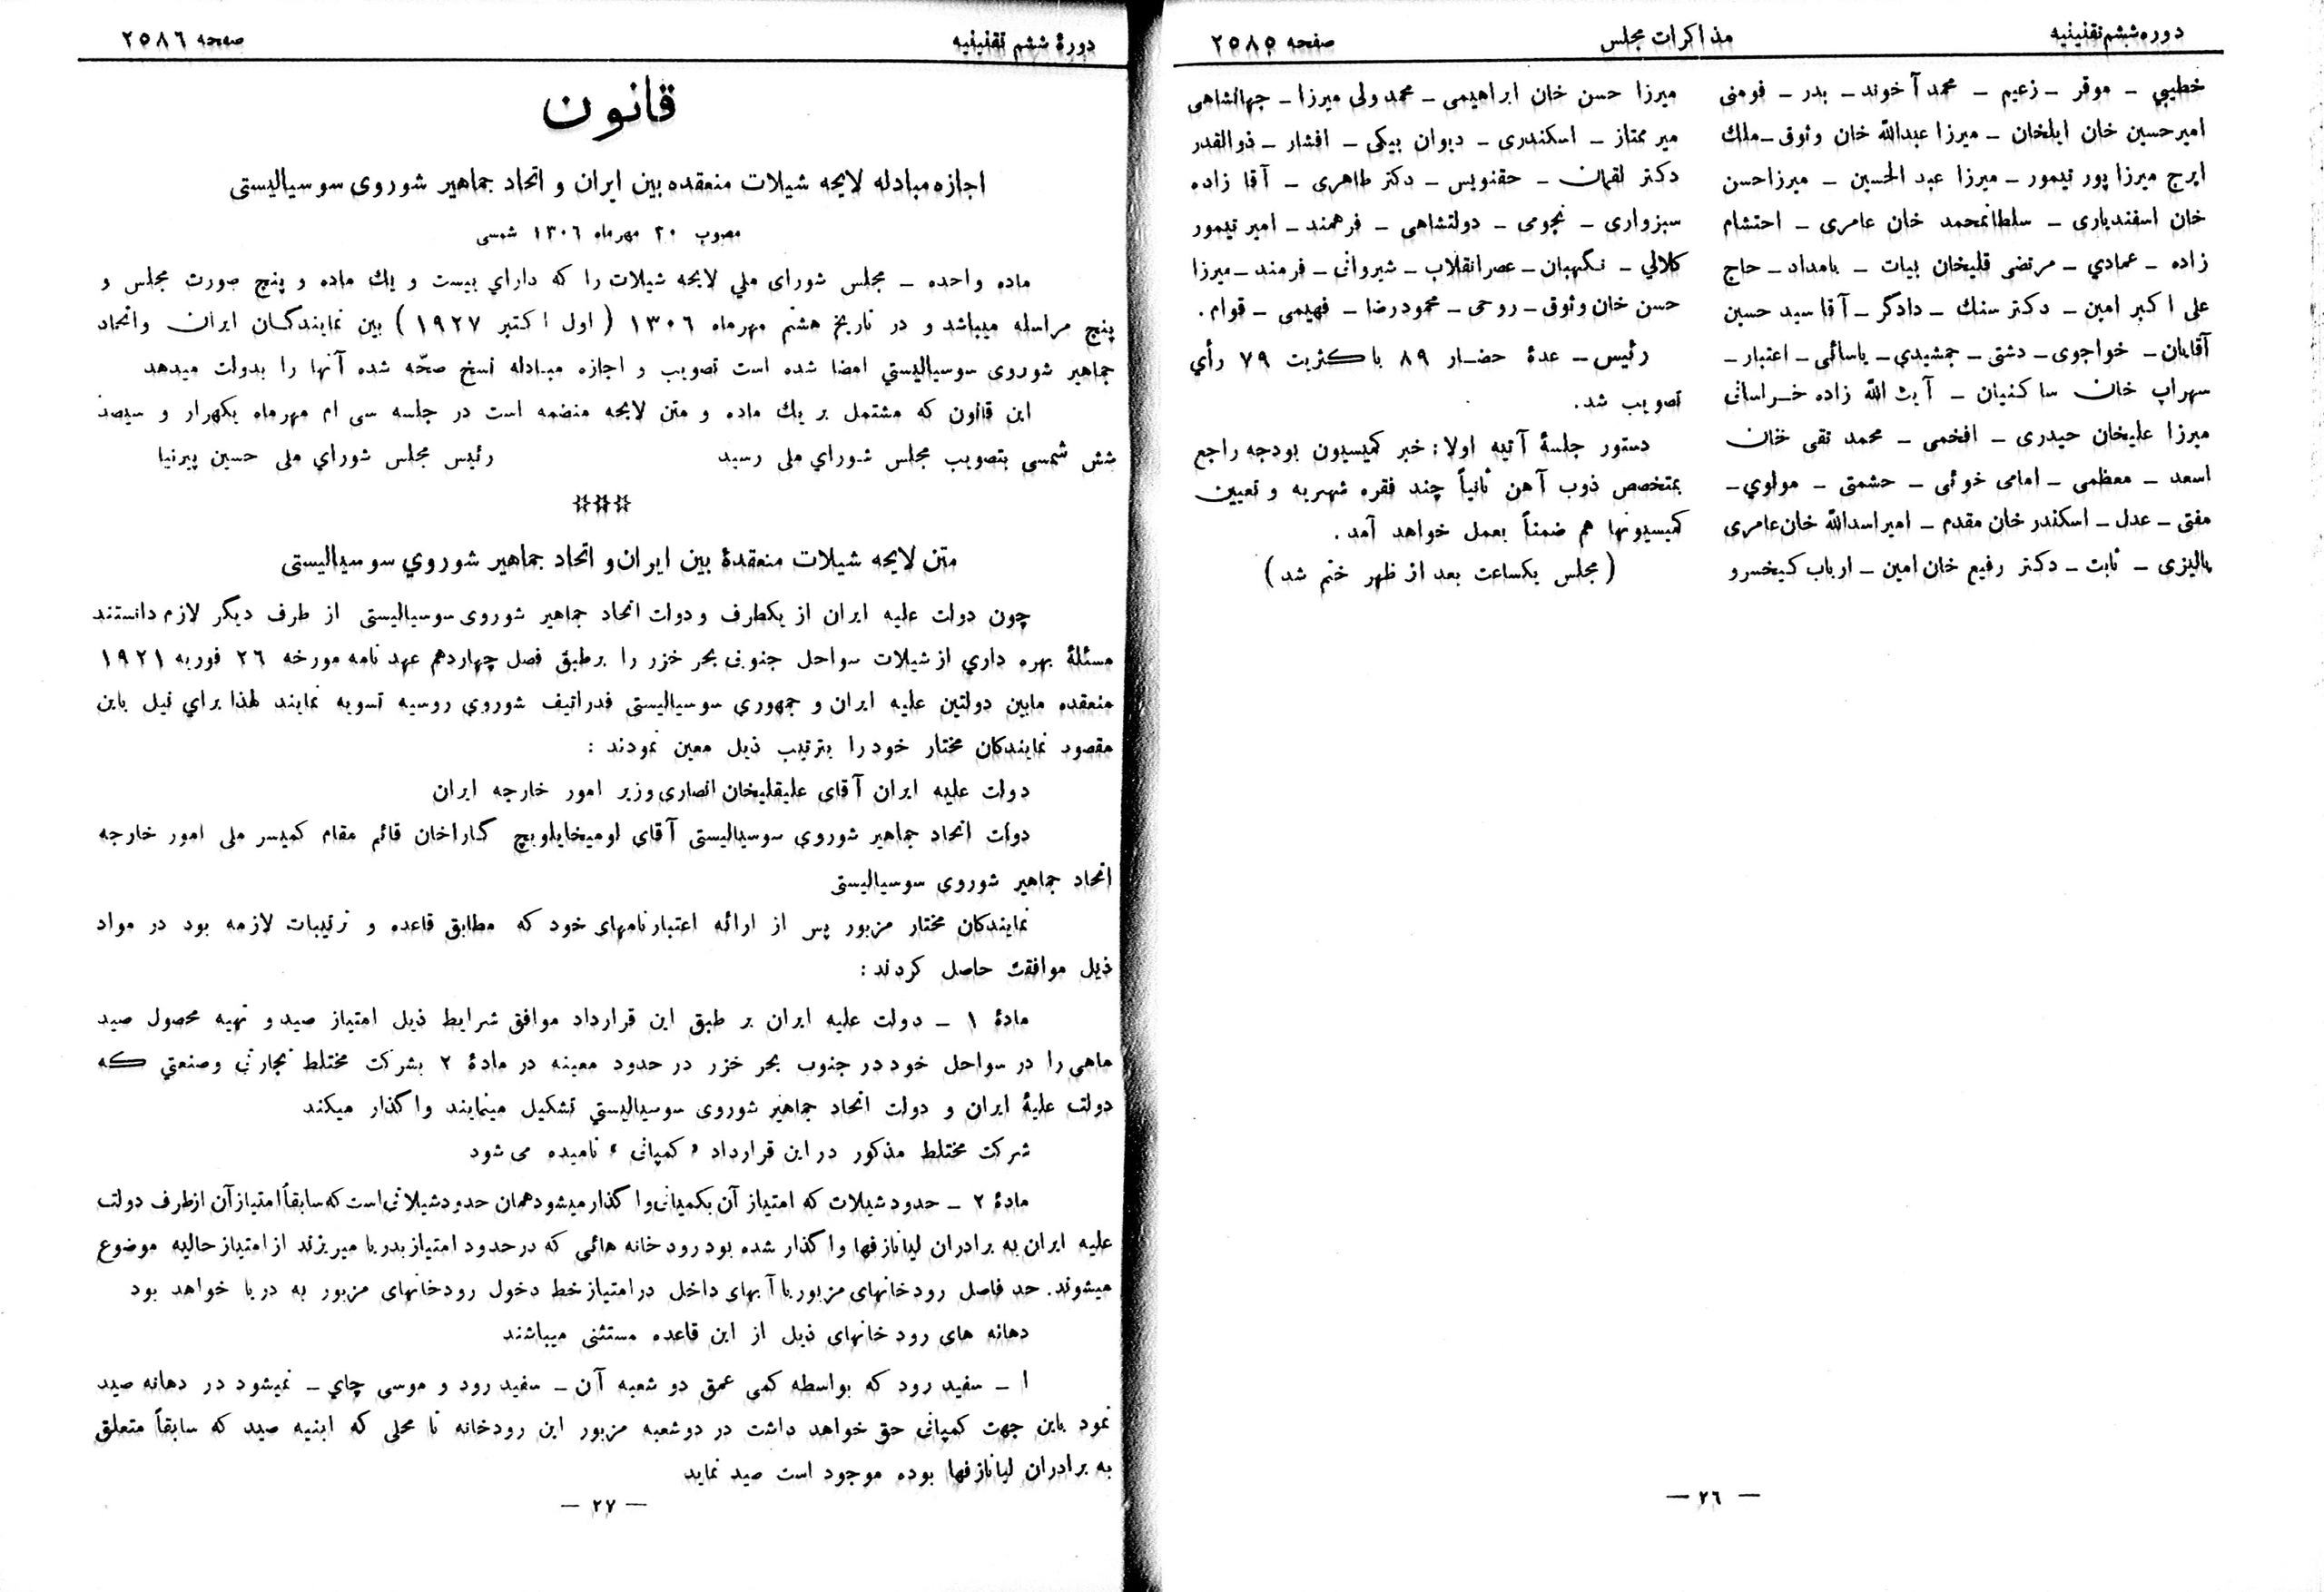 دوره ششم تقنینیه
مذاکرات مجلس
صفحه ۲۵۸۵
خطیبی – موقر – زعیم – محمد آخوند – بدر – فومنی
امیرحسین خان ایلخان – میرزا عبدالله خان وثوق – ملك
ایرج میرزا پور تیمور – میرزا عبد الحسین – میرزاحسن
خان اسفندیاری – سلطانمحمد خان عامری – احتشام
زاده – عمادي – مرتضی قلیخان بیات – بامداد – حاج
علی اکبر امین – دکتر سنك – دادگر – آقا سید حسین
آقایان – خواجوی – دشتی – جمشیدي – یاسائی – اعتبار –
سهراب خان ساکنیان – آیت الله زاده خراسانی
میرزا علیخان حیدری – افخمی – محمد تقی خان
اسعد – معظمی – امامی خوئی – حشمتی – مولوي –
مفتی – عدل – اسکندر خان مقدم – امیر اسدالله خان عامری
پالیزی – ثابت – دکتر رفیع خان امین – ارباب کیخسرو
میرزا حسن خان ابراهیمی – محمد ولی میرزا – جهانشاهی
میر ممتاز – اسکندری – دیوان بیکی – افشار – ذوالقدر
دکتر لقمان – حقنویس – دکتر طاهری – آقا زاده
سبزواری – نجومی – دولتشاهی – فرهمند – امیر تیمور
کلالي – نگهبان – عصر انقلاب – شیروانی – فرمند – میرزا
حسن خان وثوق – روحی – محمود رضا – فهیمی – قوام .
رئیس – عدهٔ حضار ۸۹ باکثریت ۷۹ رأي
تصویب شد.
دستور جلسهٔ آتیه اولا: خبر کمیسیون بودجه راجع
بمتخصص ذوب آهن ثانیاً چند فقره شهریه و تعیین
کمیسیونها هم ضمناً بعمل خواهد آمد .
(مجلس یکساعت بعد از ظهر ختم شد)
— ۲۶ —
دورهٔ ششم تقنینیه
صفحه ۲۵۸۶
قانون
اجازه مبادله لایحه شیلات منعقده بین ایران و اتحاد جماهیر شوروی سوسیالیستی
مصوب ۳۰ مهرماه ۱۳۰۶ شمسی
ماده واحده – مجلس شورای ملي لایحه شیلات را که دارای بیست و یك ماده و پنج صورت مجلس و
پنج مراسله میباشد و در تاریخ هشتم مهرماه ۱۳۰۶ (اول اکتبر ۱۹۲۷) بین نمایندگان ایران و اتحاد
جماهیر شوروی سوسیالیستي امضا شده است تصویب و اجازه مبادله نسخ صحّه شده آنها را بدولت میدهد
این قانون که مشتمل بر یك ماده و متن لایحه منضمه است در جلسه سی ام مهرماه یکهزار و سیصد
شش شمسی بتصویب مجلس شورای ملی رسید
رئیس مجلس شورای ملی حسین پیرنیا
***
متن لایحه شیلات منعقدهٔ بین ایران و اتحاد جماهیر شوروي سوسیالیستی
چون دولت علیه ایران از یکطرف و دولت اتحاد جماهیر شوروی سوسیالیستی از طرف دیگر لازم دانستند
مسئلهٔ بهره داري از شیلات سواحل جنوبی بحر خزر را برطبق فصل چهاردهم عهد نامه مورخه ۲۶ فوریه ۱۹۲۱
منعقده مابین دولتین علیه ایران و جمهوري سوسیالیستی فدراتیف شوروي روسیه تسویه نمایند لهذا براي نیل باین
مقصود نمایندکان مختار خود را بترتیب ذیل معین نمودند :
دولت علیه ایران آقای علیقلیخان انصاری وزیر امور خارجه ایران
دولت اتحاد جماهیر شوروي سوسیالیستی آقای لومیخایلویچ کاراخان قائم مقام کمیسر ملی امور خارجه
اتحاد جماهیر شوروی سوسیالیستی
نمایندکان مختار مزبور پس از ارائه اعتبارنامهای خود که مطابق قاعده و ترتیبات لازمه بود در مواد
ذیل موافقت حاصل کردند :
مادهٔ ۱ – دولت علیه ایران بر طبق این قرارداد موافق شرایط ذیل امتیاز صید و تهیه محصول صید
ماهی را در سواحل خود در جنوب بحر خزر در حدود معینه در مادهٔ ۲ بشرکت مختلط تجارتی وصنعتي که
دولت علیهٔ ایران و دولت اتحاد جماهیر شوروی سوسیالیستي تشکیل مینمایند واکذار میکند
شرکت مختلط مذکور در این قرارداد «کمپانی» نامیده می شود
مادهٔ ۲ – حدود شیلات که امتیاز آن بکمپانی واکذار میشود همان حدود شیلاتی است که سابقاً امتیاز آن ازطرف دولت
علیه ایران به برادران لیانازفها واکذار شده بود رود خانه هائی که در حدود امتیاز بدریا میریزند از امتیاز حالیه موضوع
میشوند. حد فاصل رودخانهای مزبور با آبهای داخل در امتیاز خط دخول رودخانهای مزبور به دریا خواهد بود
دهانه های رود خانهای ذیل از این قاعده مستثنی میباشند
۱ – سفید رود که بواسطه کمی عمق دو شعبه آن – سفید رود و موسی چاي – نمیشود در دهانه صید
نمود باین جهت کمپانی حق خواهد داشت در دوشعبه مزبور این رودخانه تا محلی که ابنیه صید که سابقاً متعلق
به برادران لیانازفها بوده موجود است صید نماید
— ۲۷ —